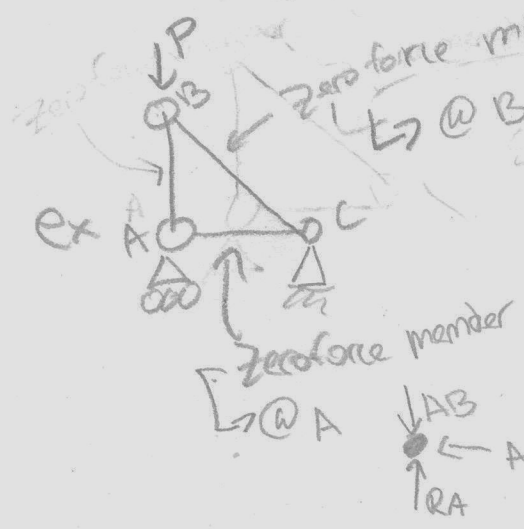 P
B
Zero force m
↳ @ B
ex A C
Zeroforce member
↳ @ A
AB
← A
RA